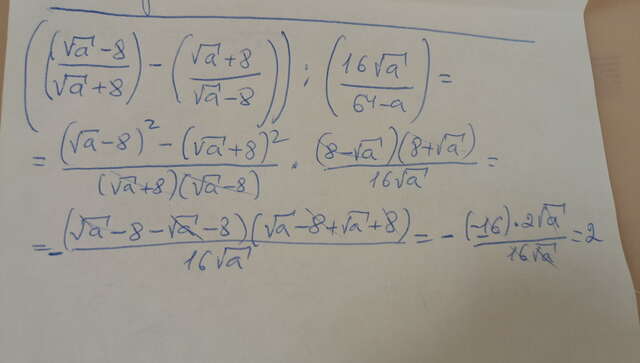 ((√a - 8)/(√a + 8) - (√a + 8)/(√a - 8)) : (16√a / 64 - a) =
= (√a - 8)² - (√a + 8)² / (√a + 8)(√a - 8) · (8 - √a)(8 + √a) / 16√a =
= - (√a - 8 - √a - 8)(√a - 8 + √a + 8) / 16√a = - (-16) · 2√a / 16√a = 2